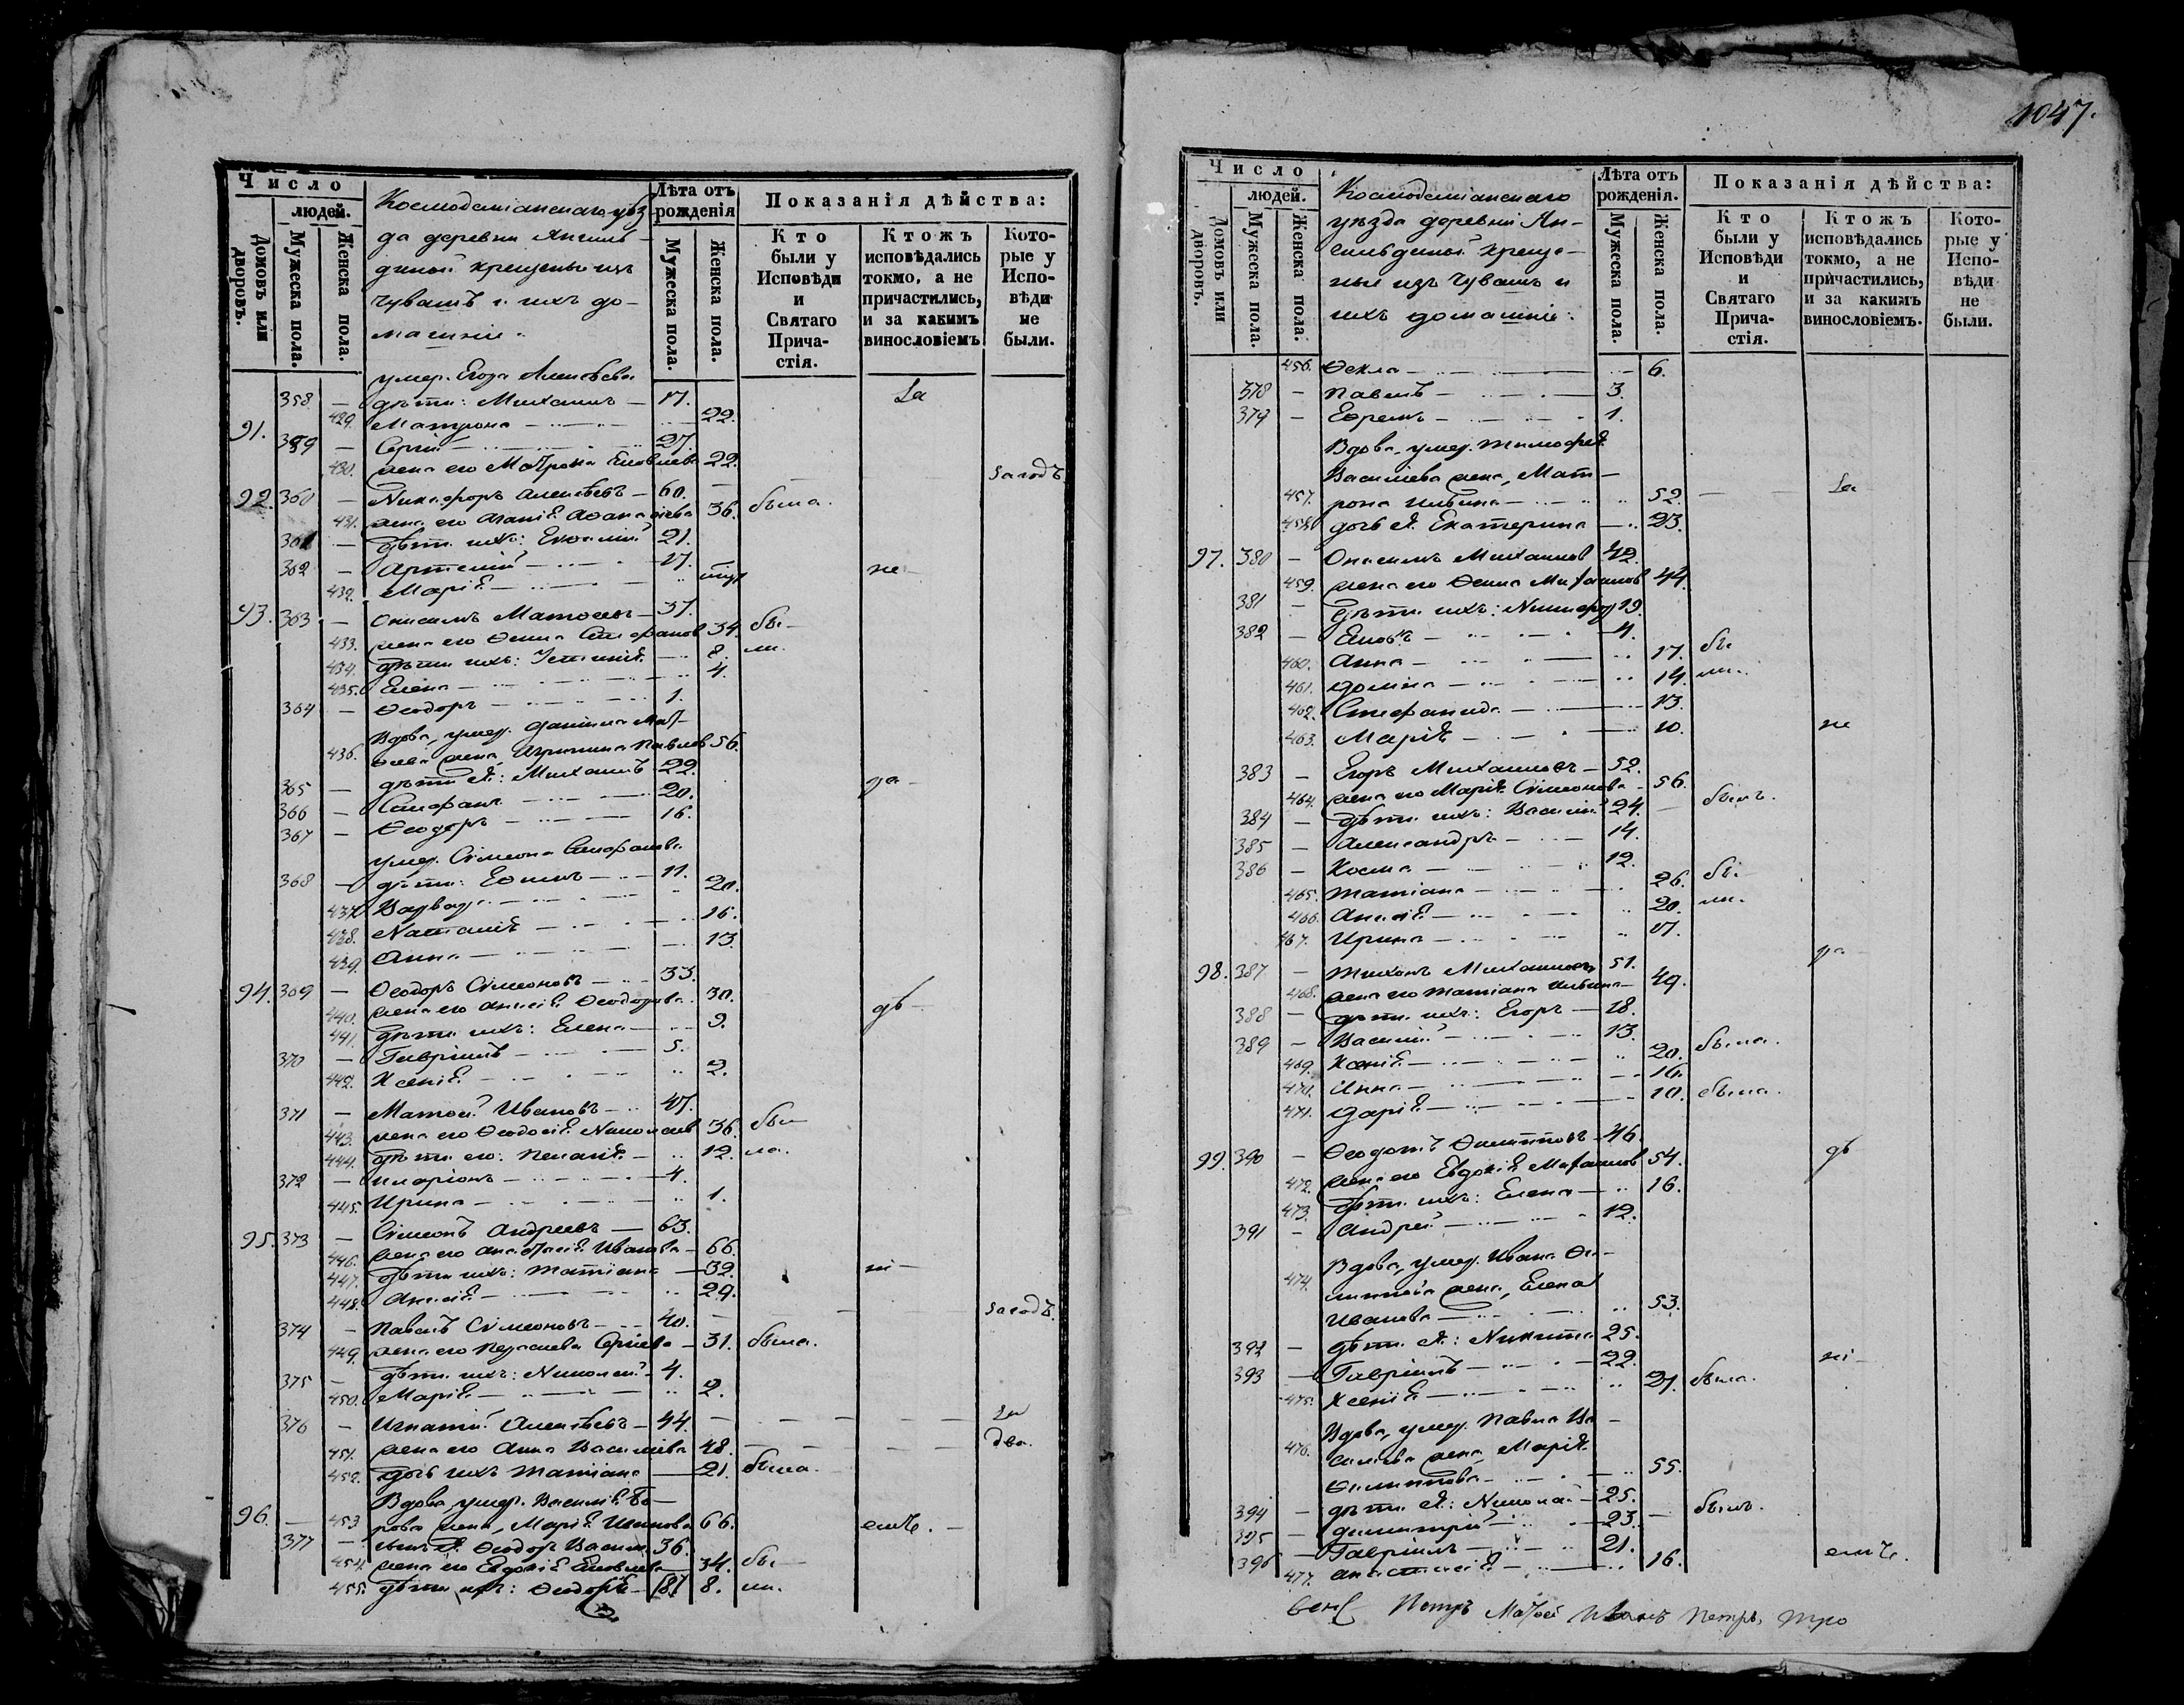 Число
людей.
Домовъ или дворовъ.
Мужеска пола.
Женска пола.
Космодемьянскаго уѣз
да деревни
динои крещеные изъ
Чувашъ и ихъ до-
машніи.
Лѣта отъ рожденія
Мужеска пола.
Женска пола.
Показанія дѣйства:
Кто были у Исповѣди и Святаго Причастія.
Ктожъ исповѣдались токмо, а не причастились, и за какимъ винословіемъ
Которые у Исповѣди не были.
умер. Егора Алексѣева
358 — дѣти: Михаилъ — 17. За
429. Матрона — 22.
91. 359 — Сергій — 27.
430. жена его Матрона Яковлева 22.
за годъ
92. 360 — Никифоръ Алексѣевъ — 60.
431. жена его Агапія Аѳанасіева 36. была.
361 — дѣти ихъ: Евѳимій 21.
362 — Артемій — 17. не
432. Марія —
93. 363 — Онисимъ Матвѣевъ — 37.
433. жена его Ѳекла Стефанов 34. бы-
434. дѣти ихъ: Устинія — 8. ли.
435. Елена — 4.
364 — Ѳеодоръ — 1.
Вдова, умер. Даніила Мат-
436. ѳева жена, Иринина Павлов 56.
365 — дѣти ея: Михаилъ 22. да
366 — Стефанъ — 20.
367 — Ѳеодоръ — 16.
умер. Сѵмеона Стефанова
368 — дѣти: Ефимъ — 11.
437. Варвара — 20.
438. Наталія — 16.
439. Анна — 13.
94. 369 — Ѳеодоръ Сѵмеоновъ — 33.
440. жена его Анисія Ѳеодорова. 30. дѣ
441. дѣти ихъ: Елена — 9.
370 — Гавріилъ — 5.
442. Ксенія — 2.
371 — Матѳей Ивановъ — 47.
443. жена его Ѳеодосія Николаев 36. бы-
444. дѣти его: Пелагія — 12. ла.
372 — Иларіонъ — 4.
445. Ирина — 1.
95. 373 — Сѵмеонъ Андреевъ — 63.
446. жена его Анастасія Иванова — 66.
447. дѣти ихъ: Татіана — 32. ні
448. Анисія — 29.
за годъ.
374 — Павелъ Сѵмеоновъ — 40.
449. жена его Параскева Сергіева — 31. была.
375 — дѣти ихъ: Николай — 4.
450. Марія — 2.
376 — Игнатій Алексѣевъ — 44. За
451. жена его Анна Василіева 48. два.
452. дочь ихъ Татіана — 21. была.
Вдова, умер. Василія
96. — 453 жена, Марія 66. емъ.
377 — сынъ ея Ѳеодоръ Васил. 36.
454. жена его Евдокія Яковлева — 34. бы-
455. дѣти ихъ: 8. ли.
1047.
Число
людей.
Домовъ или дворовъ.
Мужеска пола.
Женска пола.
Космодемьянскаго
уѣзда деревни Ян-
гильдиной креще-
ные изъ Чувашъ и
ихъ домашніе.
Лѣта отъ рожденія.
Мужеска пола
Женска пола.
Показанія дѣйства:
Кто были у Исповѣди и Святаго Причастія.
Ктожъ исповѣдались токмо, а не причастились, и за какимъ винословіемъ.
Которые у Исповѣди не были.
456. Ѳекла — 6.
378 — Павелъ — 3.
379 — Ефремъ — 1.
Вдова, умер. Тимоѳея
Василіева жена, Мат-
457. рона Ильина — 52. За
458. дочь ея Екатерина — 23.
97. 380 — Онисимъ Михаилов 42.
459. жена его Ѳекла Михаилов 44.
381 — дѣти ихъ: Никифор 19.
382 — Яковъ — 4.
460. Анна — 17. бы
461. Домна — 14. ли.
462. Стефанида — 13.
463. Марія — 10. не
383 — Егоръ Михаиловъ — 52.
464. жена его Марія Сѵмеонова — 56.
384 — дѣти ихъ: Василій 24. былъ.
385 — Александръ — 14.
386 — Косма — 12.
465. Татіана — 26. бы-
466. Анисія — 20. ли.
467. Ирина — 17.
98. 387 — Тихонъ Михаиловъ 51.
468. жена его Татіана Ильина — 49.
388 — дѣти ихъ: Егоръ — 18.
389 — Василій — 13.
469. Ксенія — 20. была.
470. Анна — 16.
471. Дарія — 10. была.
99. 390 — Ѳеодотъ Филипповъ — 46. дѣ
472. жена его Евдокія Михаилов 54.
473. дѣти ихъ: Елена — 16.
391 — Андрей — 12.
Вдова, умер. Ивана Фи-
474. липпова жена, Елена
Иванова — 53.
392 — дѣти ея: Никита 25.
393 — Гавріилъ — 22. ні
475. Ксенія — 21. была.
Вдова, умер. Павла Ва-
476. силіева жена, Марія
Филиппова — 55.
394 — дѣти ея: Николай — 25. былъ.
395 — Димитрій — 23.
396 — Гавріилъ — 21.
477. Анастасія — 16. емъ.
Петръ Матѳей Иванъ Петръ,